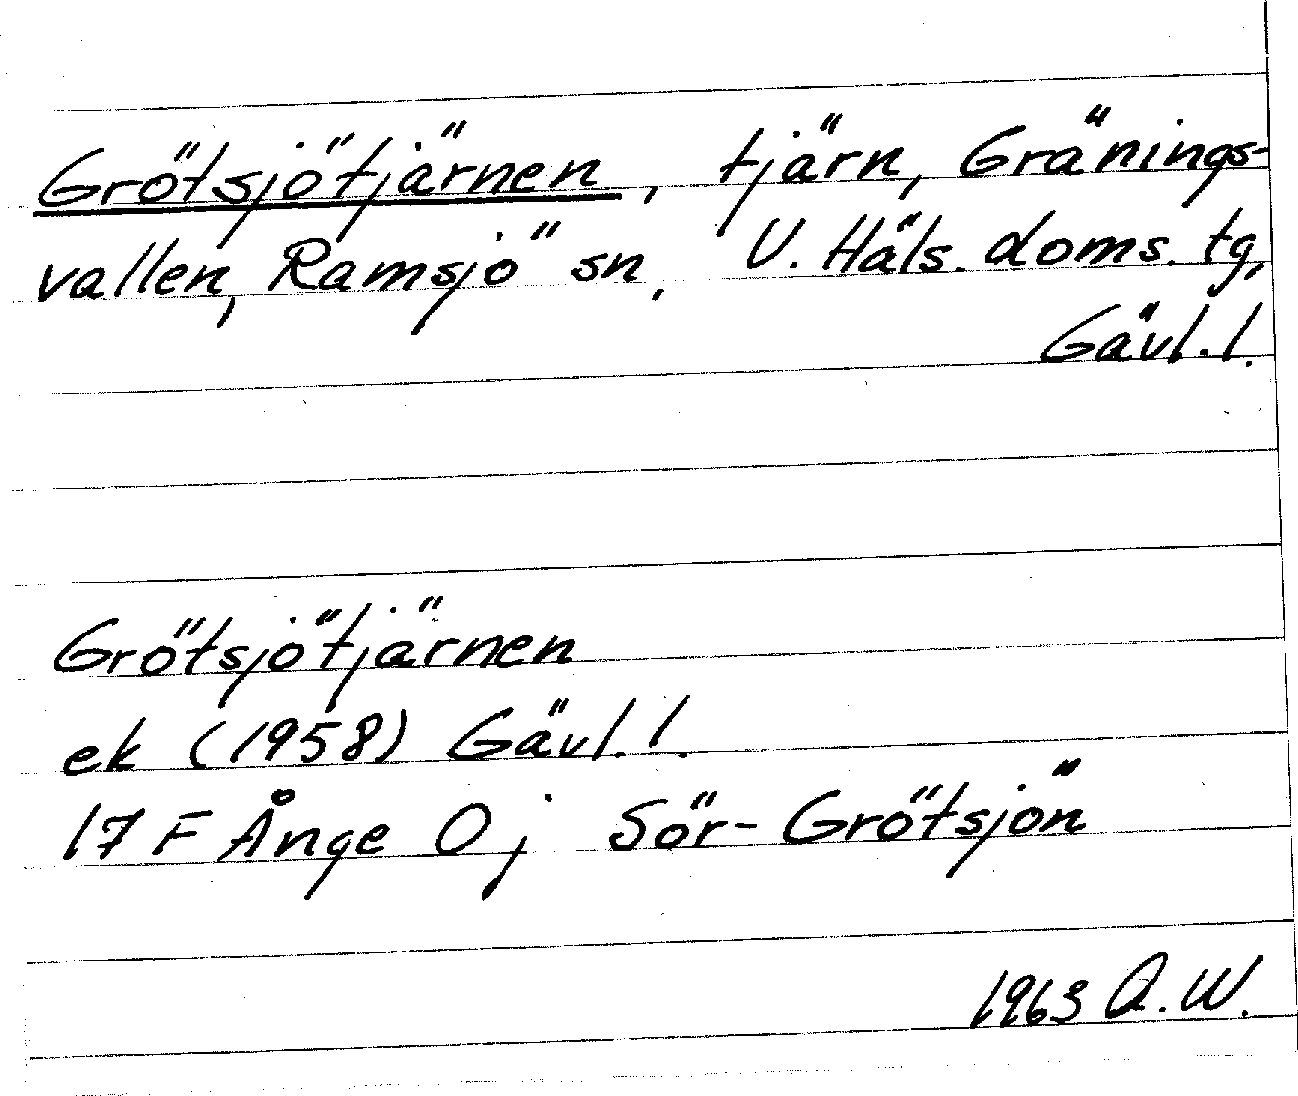 Grötsjötjärnen, tjärn, Gränings-
vallen, Ramsjö sn, V. Häls. doms. tg,
Gävl. l.
Grötsjötjärnen
ek (1958) Gävl. l.
17 F Ånge O; Sör-Grötsjön
1963 A.W.